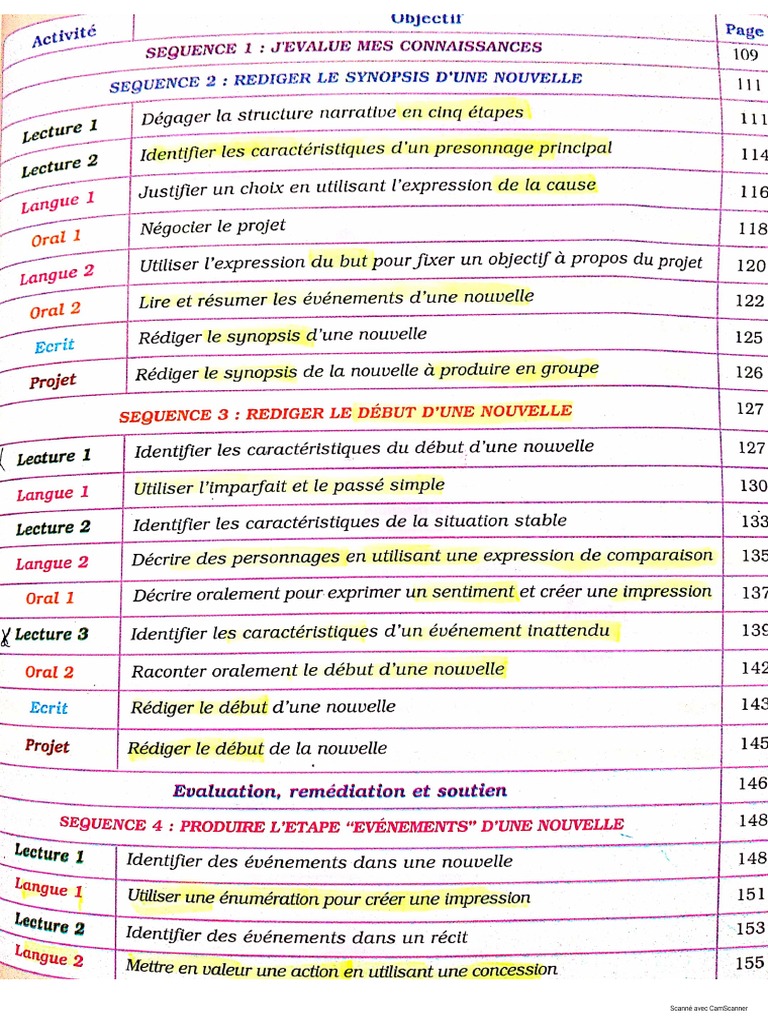 Activité Objectif Page
SEQUENCE 1 : J'EVALUE MES CONNAISSANCES 109
SEQUENCE 2 : REDIGER LE SYNOPSIS D'UNE NOUVELLE 111
Lecture 1 Dégager la structure narrative en cinq étapes 111
Lecture 2 Identifier les caractéristiques d'un presonnage principal 114
Langue 1 Justifier un choix en utilisant l'expression de la cause 116
Oral 1 Négocier le projet 118
Langue 2 Utiliser l'expression du but pour fixer un objectif à propos du projet 120
Oral 2 Lire et résumer les événements d'une nouvelle 122
Ecrit Rédiger le synopsis d'une nouvelle 125
Projet Rédiger le synopsis de la nouvelle à produire en groupe 126
SEQUENCE 3 : REDIGER LE DÉBUT D'UNE NOUVELLE 127
Lecture 1 Identifier les caractéristiques du début d'une nouvelle 127
Langue 1 Utiliser l'imparfait et le passé simple 130
Lecture 2 Identifier les caractéristiques de la situation stable 133
Langue 2 Décrire des personnages en utilisant une expression de comparaison 135
Oral 1 Décrire oralement pour exprimer un sentiment et créer une impression 137
Lecture 3 Identifier les caractéristiques d'un événement inattendu 139
Oral 2 Raconter oralement le début d'une nouvelle 142
Ecrit Rédiger le début d'une nouvelle 143
Projet Rédiger le début de la nouvelle 145
Evaluation, remédiation et soutien 146
SEQUENCE 4 : PRODUIRE L'ETAPE "EVÉNEMENTS" D'UNE NOUVELLE 148
Lecture 1 Identifier des événements dans une nouvelle 148
Langue 1 Utiliser une énumération pour créer une impression 151
Lecture 2 Identifier des événements dans un récit 153
Langue 2 Mettre en valeur une action en utilisant une concession 155
Scanné avec CamScanner